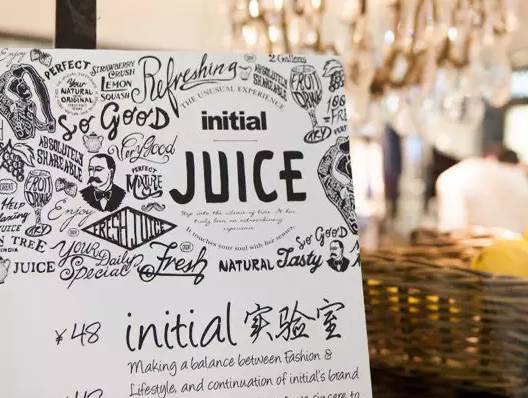 Enjoy
PERFECT
STRAWBERRY
CRUSH
LEMON
SQUASH
Your
NATURAL
ORIGINAL
Refreshing
2 Gallons
ABSOLUTELY
SHAREABLE
FRUIT
DRINK
THE UNUSUAL EXPERIENCE
So GOOD
initial
JUICE
ABSOLUTELY
SHAREABLE
Very Good
PERFECT
MIXTURE
FRUIT
DRINK
Enjoy
FRESH JUICE
Help
JUICE
Step into the silence of time. It has
truly been an extraordinary
experience
It touches your soul with her senses.
N TREE
INDIA
JUICE
Your Daily
Special
Fresh
NATURAL
Tasty
So GOOD
¥48
initial 实验室
Making a balance between Fashion &
Lifestyle, and continuation of initial's brand
sincere to